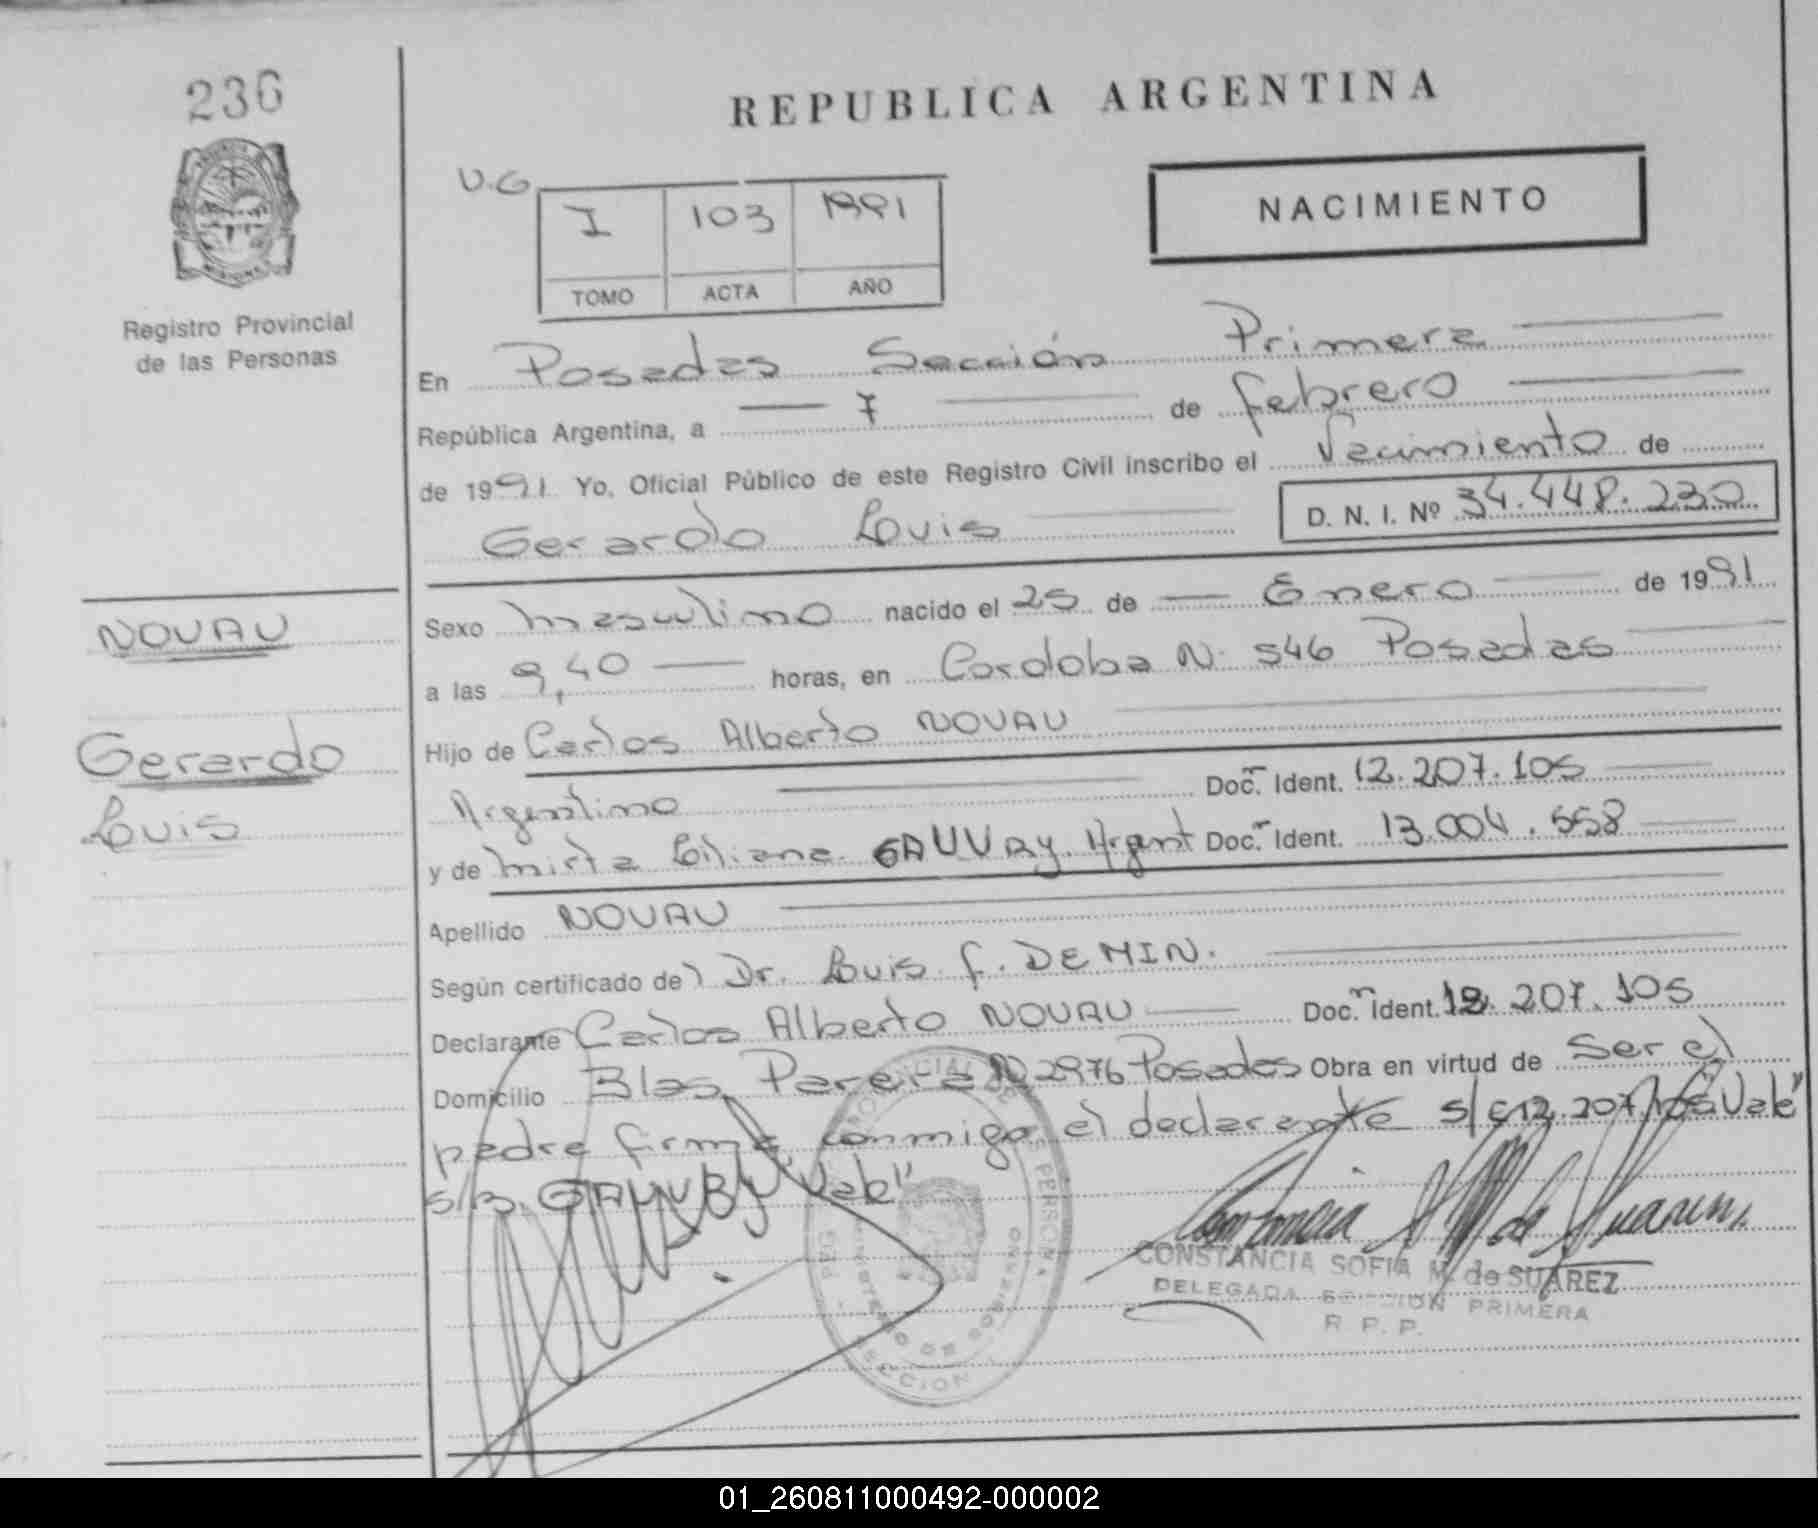 236
REPUBLICA ARGENTINA
U.G
I 103 1991
TOMO ACTA AÑO
NACIMIENTO
Registro Provincial
de las Personas
En Posadas Sección Primera
República Argentina, a 7 de febrero
de 1991 Yo, Oficial Público de este Registro Civil inscribo el Nacimiento de
Gerardo Luis D. N. I. Nº 34.448.230
NOVAU
Gerardo
Luis
Sexo masculino nacido el 25 de Enero de 1991
a las 9,40 horas, en Cordoba N. 546 Posadas
Hijo de Carlos Alberto NOVAU
Argentino Doc. Ident. 12.207.105
y de Mirta Liliana GAUVRY Argent Doc. Ident. 13.004.558
Apellido NOVAU
Según certificado de) Dr. Luis F. DEMIN.
Declarante Carlos Alberto NOVAU Doc. Ident. 12.207.105
Domicilio Blas Parera N 2976 Posadas Obra en virtud de Ser el
padre firma conmigo el declarante s/c 12.207.105 "Vale"
s/B. "Vale"
CONSTANCIA SOFIA M. de SUAREZ
DELEGADA SECCION PRIMERA
R. P. P.
01_260811000492-000002